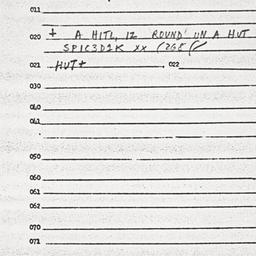 011
020 + A HITL, 12 ROUND' UN A HUT
XX
021 HUT+ 022
030
040
041
050
060
061
062
070
071